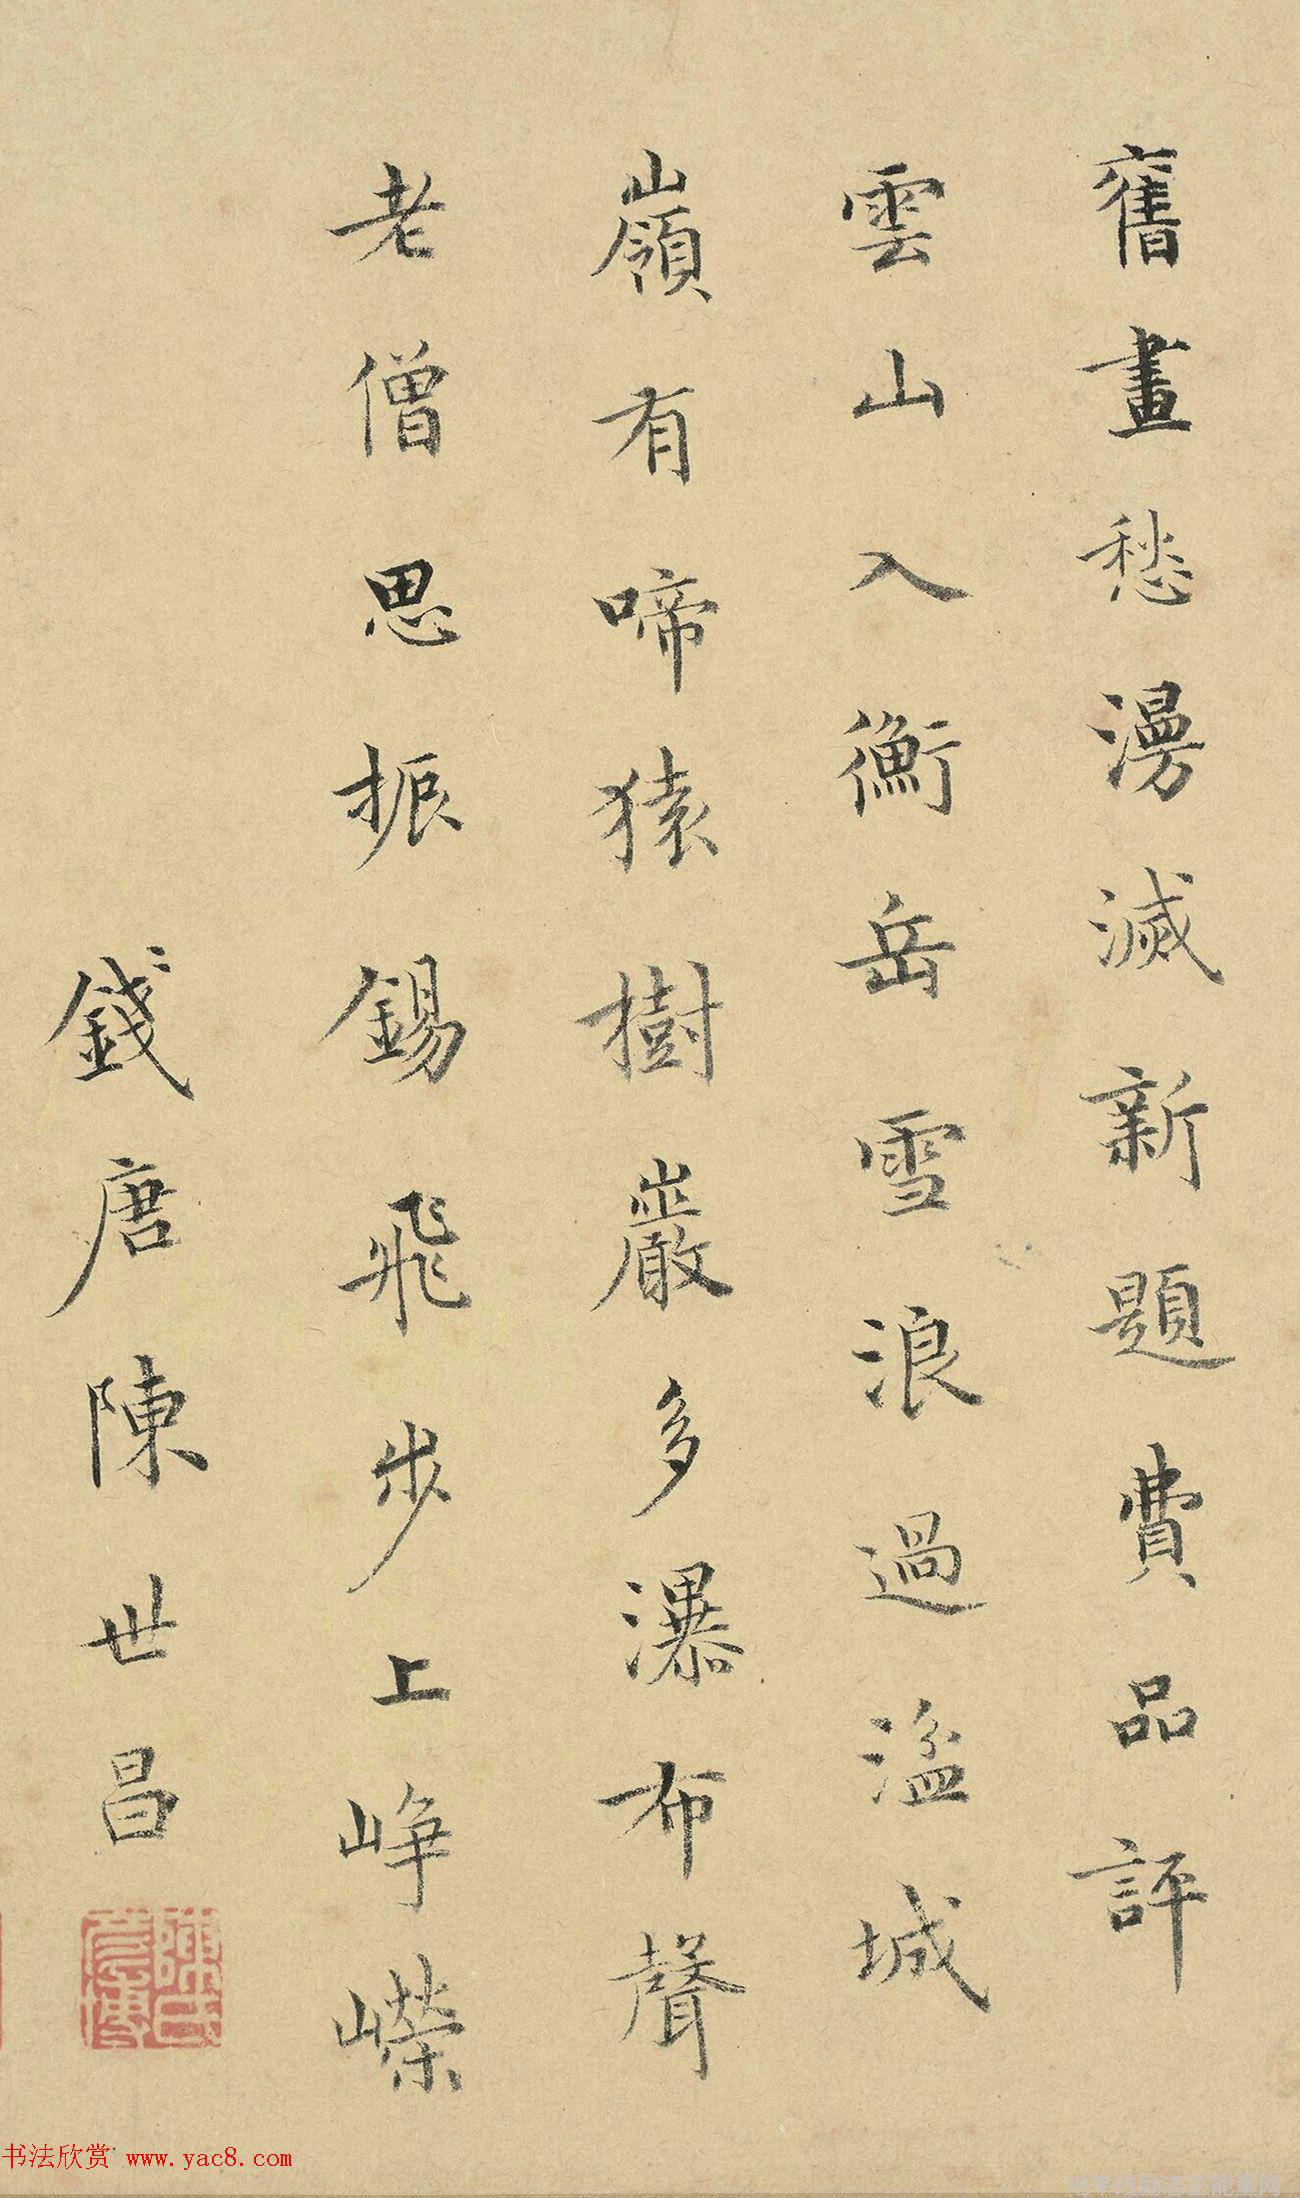 舊畫愁漫滅新題費品評
雲山入衡岳雪浪過湓城
嶺有啼猿樹巖多瀑布聲
老僧思振錫飛步上崢嶸
錢唐陳世昌
书法欣赏 www.yac8.com